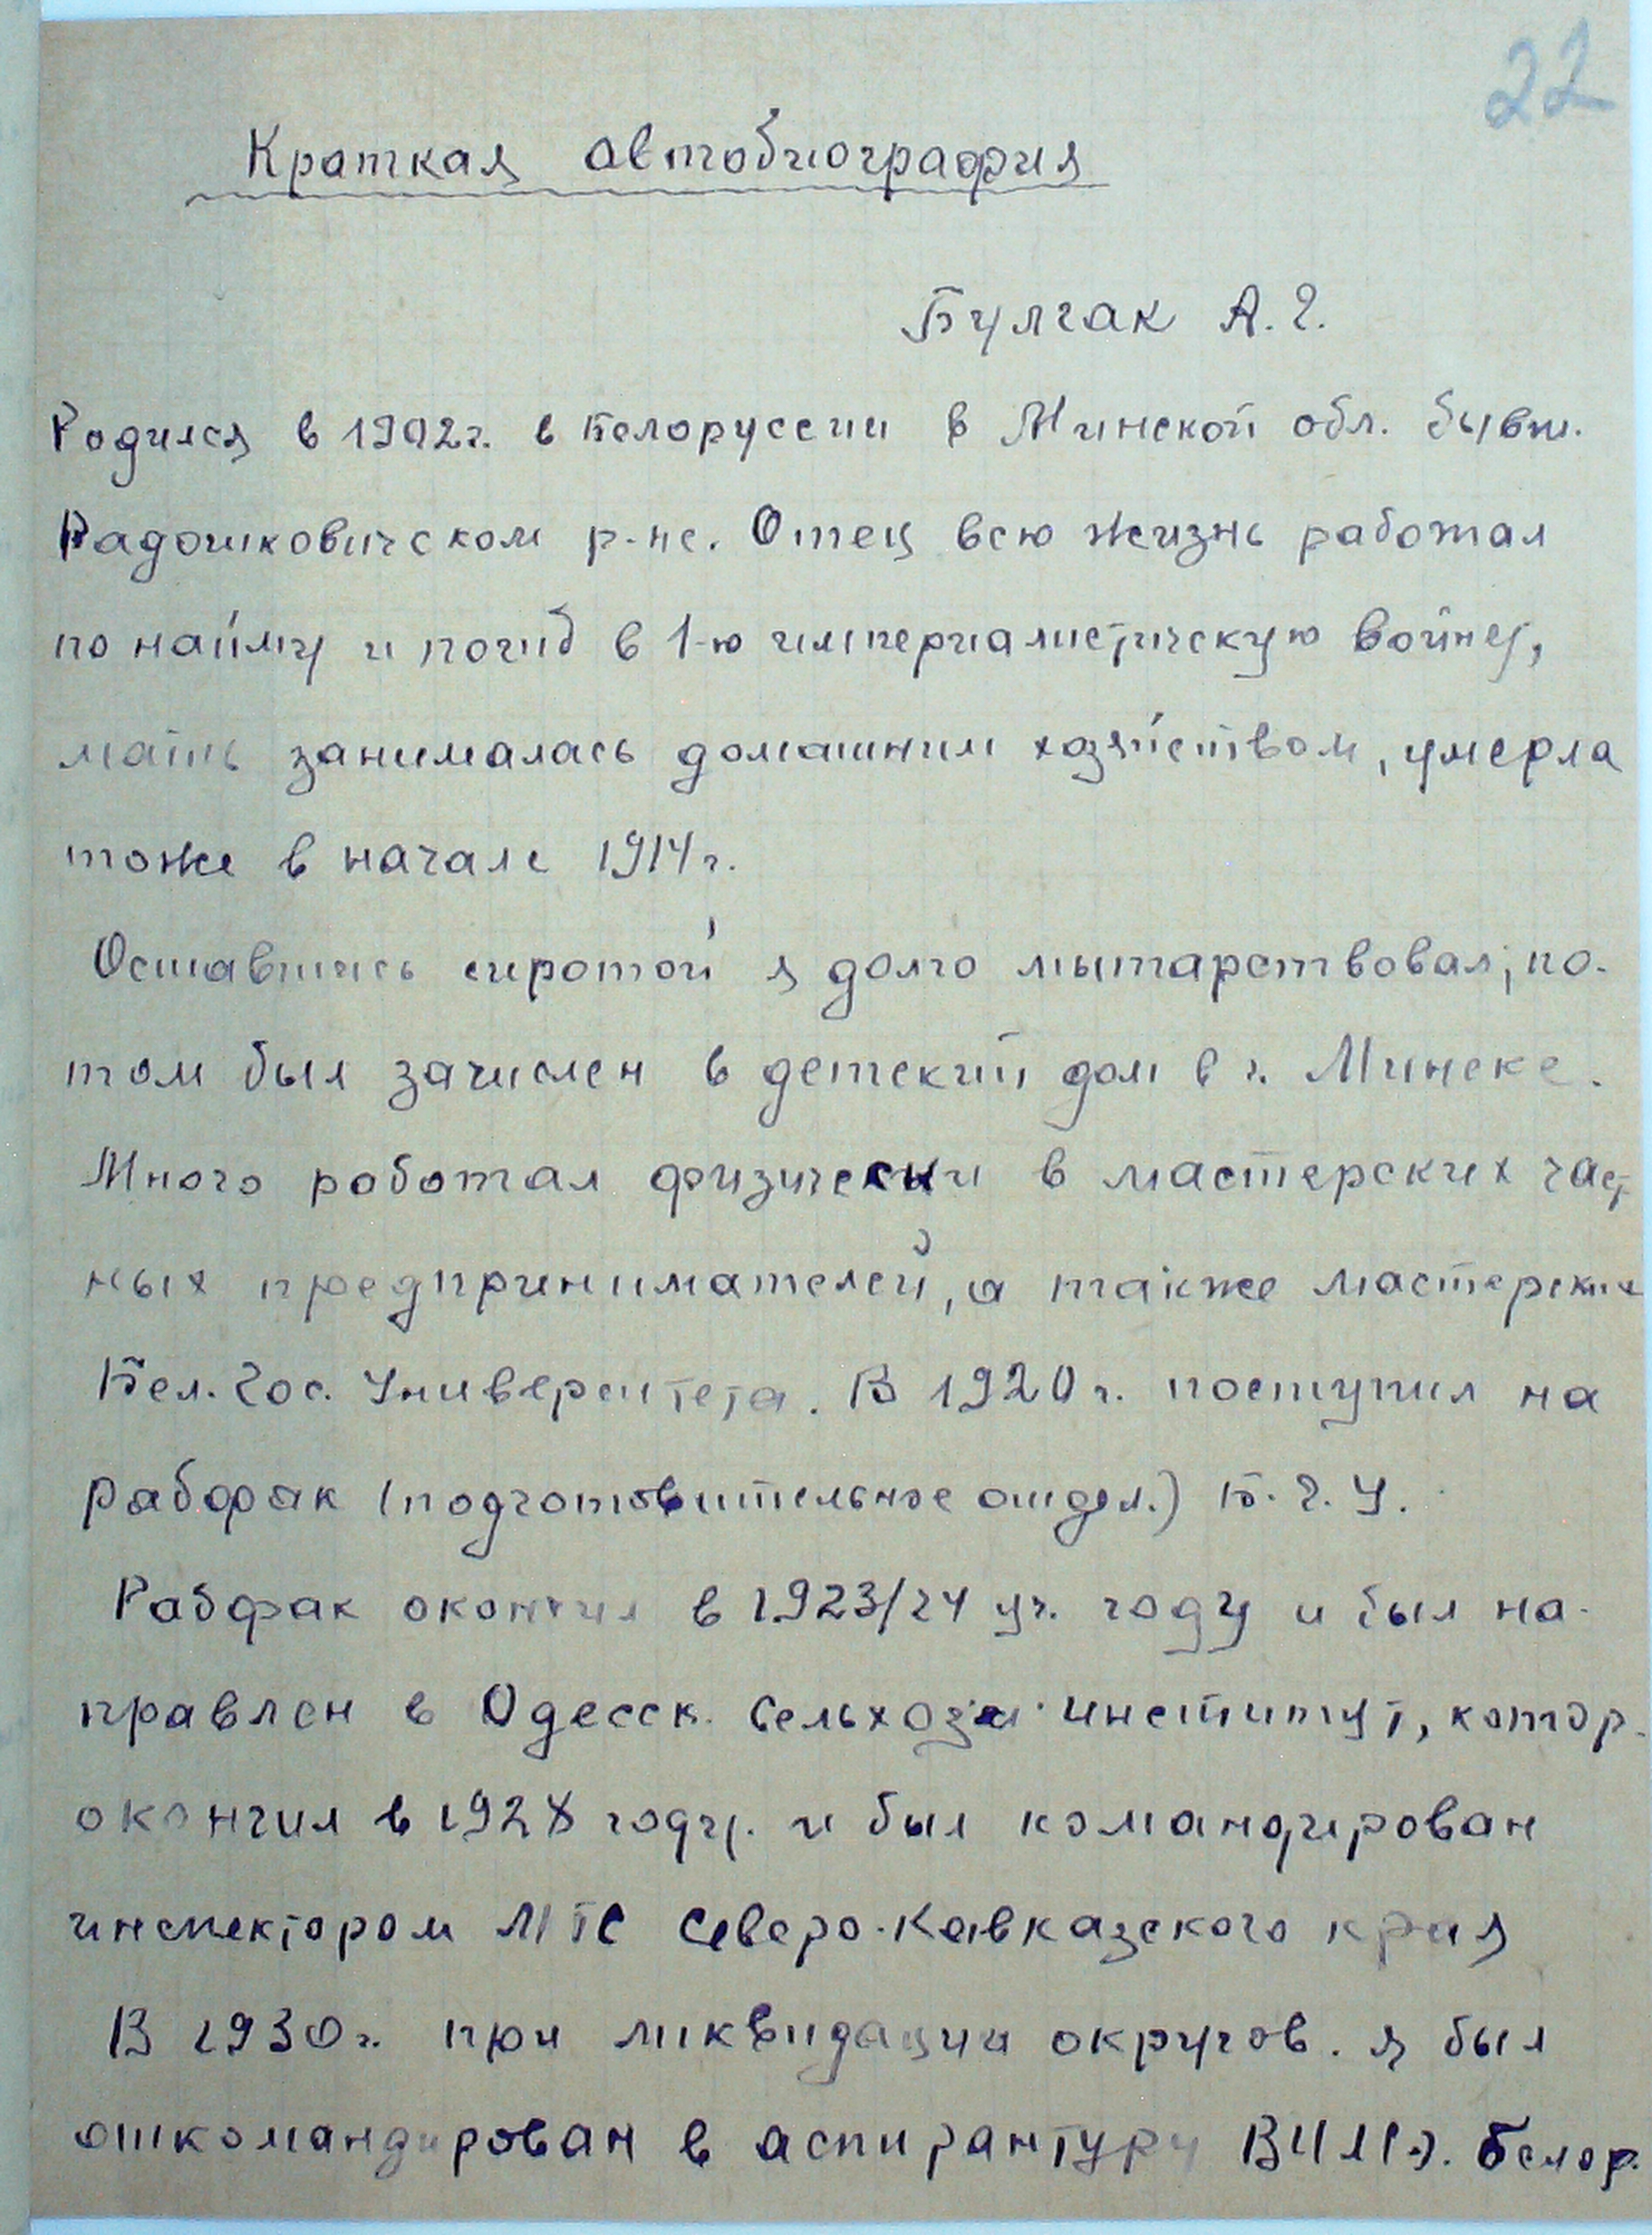 22
Краткая автобиография
Булгак А. Г.
Родился в 1902 г. в Белоруссии в Минской обл. бывш.
Радошковичском р-не. Отец всю жизнь работал
по найму и погиб в 1-ю империалистическую войну,
мать занималась домашним хозяйством, умерла
тоже в начале 1914 г.
Оставшись сиротой я долго мытарствовал, по-
том был зачислен в детский дом в г. Минске.
Много работал физически в мастерских част
ных предпринимателей, а также мастерских
Бел. Гос. Университета. В 1920 г. поступил на
рабфак (подготовительное отдел.) Б. Г. У.
Рабфак окончил в 1923/24 уч. году и был на-
правлен в Одесск. сельхоз. институт, котор.
окончил в 1928 году. и был командирован
инспектором МТС Северо-Кавказского края
В 1930 г. при ликвидации округов. я был
откомандирован в аспирантуру Белор.